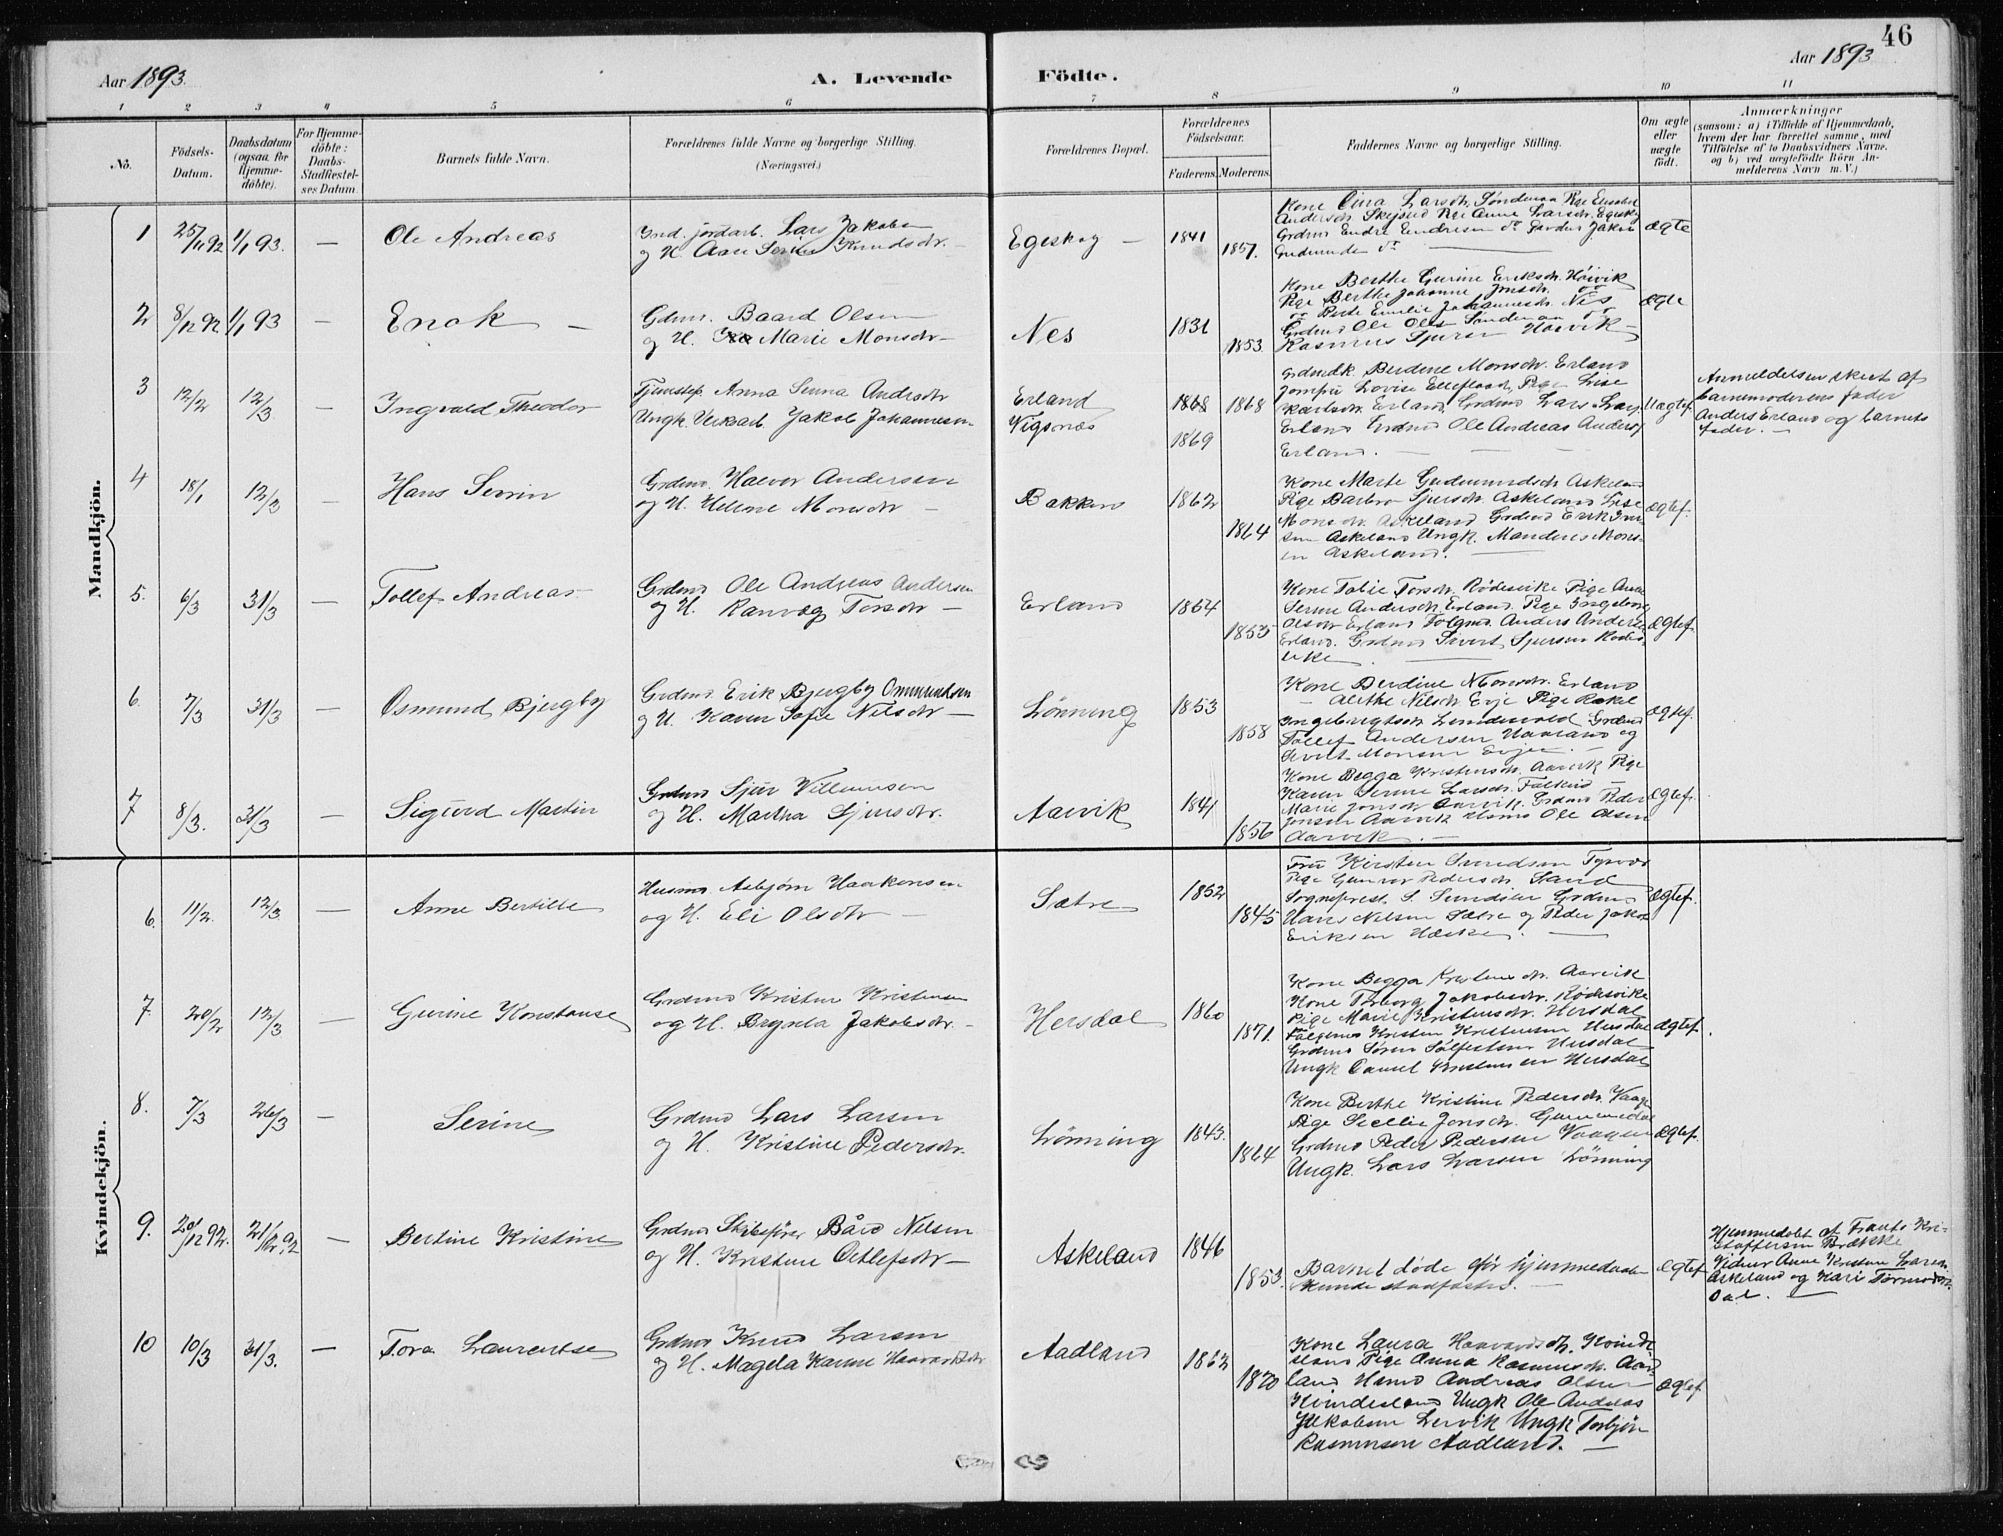 46
Aar 1893.
A. Levende Födte.
Aar 1893
1 2 3 4 5 6 7 8 9 10 11
No.
Födsels-Datum.
Daabsdatum (ogsaa for Hjemmedöbte).
For Hjemmedöbte: Daabs-Stadfæstelses Datum.
Barnets fulde Navn.
Forældrenes fulde Navne og borgerlige Stilling. (Næringsvei.)
Forældrenes Bopæl.
Forældrenes Födselsaar.
Faderens. Moderens.
Faddernes Navne og borgerlige Stilling.
Om ægte eller uægte födt.
Anmærkninger
(saasom: a) i Tilfælde af Hjemmedaab, hvem der har forrettet samme, med Tilföielse af to Daabsvidners Navne, og b) ved uægtefödte Börn Anmelderens Navn m. V.)
Mandkjön.
1 25/11 92 1/1 93. — Ole Andreas
Ind. jordarb. Lars Jakobsen
og H. Ane Serine Knudsdtr. —
Egeskog — 1841 1851.
Andersdr. Skejsvd Pige Anne Larsdr. Egeskog
Grdmd Endre Endresen do
Gudmunds do
ægte
2 8/12 92 1/1 93 — Enok —
Gdmd. Baard Olsen
og H. Marie Monsdtr —
Nes 1831 1853
Kone Berthe Gurine Eriksdtr. Höivik
Pige Berthe Johanne Jonsdtr. do
Johannesdtr. Nes
Grdmd Ole Olsen Sönden
Rasmus Sjursen
ægte
3 12/2 12/3 — Ingvald Theodor
Tjenstep. Anna Serina Andersdtr
Ungk. Jakob Johannesen
Erland
Vigsnæs
1868 1868
1869
Grdmdk. Berdine Monsdtr. Erland
Jomfru Lovise Pige Lise
Karlsdtr. Erland. Grdmd Lars Larsen
Erland Grdmd Ole Andreas Anders
Erland. —
Uægtef.
Anmeldelsen skeet af
barnemoderens fader
Anders Erland og barnets
fader. —
4 18/1 12/3 — Hans Severin
Grdmd. Halvor Andersen
og H. Helene Monsdtr —
Bakken 1862 1864
Kone Marte Gudmundsdtr Askeland
Pige Barbro Sjursdtr. Askeland Lise
Monsdtr. Askeland Grdmd Erik
Askeland Ungk. Monsen
Askeland. —
Ægtef.
5. 6/3 31/3 — Tollef Andreas
Grdmd Ole Andreas Andersen
og H. Ranveg Torsdtr —
Erland 1854 1853
Kone Torsdtr. Rödesvike Pige Anne
Serine Andersdtr Erland. Pige Ingeborg
Olsdtr Erland Anders Andersen
Erland. Grdmd Sivert Sjursen Rödes
vike. —
Ægtef.
6. 7/3 31/3 — Osmund Bjergby
Grdmd. Erik Bjergby Osmundsen
og H. Karen Sofie Nilsdtr —
Lönning 1853 1858
Kone Berdine Monsdtr. Erland
— Alethe Nilsdtr Pige Rakel
Ingebrigtsdtr Grdmd
Tollef Andersen og
Sivert Monsen
Ægtef.
7 8/3. 31/3 — Sigurd Martin
Grdmd Sjur Villumsen
og H. Martha Sjursdtr.
Aarvik 1841 1856
Kone Begga Kristensdtr. Aarvik Pige
Karen Serine Larsdtr.
Marie Jonsdtr Aarvik. Grdmd Peder
Jonsen Aarvik Husmd Ole Olsen
Aarvik. —
Ægtef.
Kvindekjön.
6. 11/2. 12/3 — Anne Bertille
Husmd. Asbjørn Haakonsen
og H. Eli Olsdtr
Sætre 1852 1845
Fru Kirsten Tysvær
Pige Gunvor Pedersdtr.
Sognsprest. S. Grdmd
Hans Nilsen Sætre og Peder Jakob
Eriksen —
Ægtef.
7. 20/2 12/3 — Gurine Konstanse
Grdmd Kristen Kristensen
og H. Brynla Jakobsdtr. —
Hersdal 1860 1871.
Kone Begga Kristensdtr. Aarvik
Kone Torborg Jakobsdtr. Rödesvike
Pige Marie Kristensdtr. Hersdal
Kristen Kristensen Hersdal
Grdmd Sören Hersdal
Ungk Daniel Kristensen Hersdal
Ægtef.
8. 7/3 26/3 — Serine
Grdmd Lars Larsen
og H. Kristine Pedersdtr.
Lönning 1843. 1864
Kone Berthe Kristine Pedersdtr. Vaage
Pige Jonsdtr.
Grdmd Peder Pedersen Vaagen
Ungk. Lars Larsen Lönning
Ægtef.
9. 20/12 92. 21/12 92 — Bertine Kristine
Grdmd Skibsförer Bård Nilsen
og H. Kristine Detlefsdtr —
Askeland 1846 1853.
Barnet döde för hjemmedaaben
kunde stadfæstes. —
Ægtef
Hjemmedöbt af Kri-
stoffersen Brække
Vidner Anne Kristine Larsen
Askeland og Kari Tormodsdr.
Dal. —
10 10/3 31/3. — Tora Laurentse
Grdmd Knud Larsen
og H. Magela Karine Haavardsdtr
Aadland 1862 1870
Kone Laura Haavardsdtr. Kvinde
sland Pige Anna Rasmusdtr. Aad
land Husmd Andreas Olsen
Kvindesland Ungk Ole Andreas
Jakobsen Lervik Ungk Torbjörn
Rasmussen Aadland. —
Ægtef